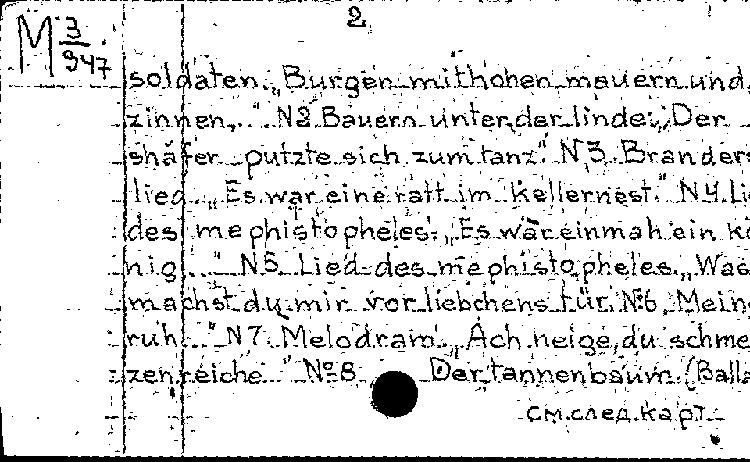 2
M 3/947
soldaten. „Burgen mithohen mauern und
zinnen,." N2 Bauern unter der linde: „Der
shäfer putzte sich zum tanz". N3. Branders
lied „Es war eine ratt im kellernest." N4. Li
des mephistopheles: „Es war einmah ein kö
nig..." N5. Lied des mephistopheles „Was
machst du mir vor liebchens tür. №6 „Mein
ruh..." N7. Melodram. „Ach neige, du schme
zenreiche..." №8 Der tannenbaum. (Balla
см.след.карт.